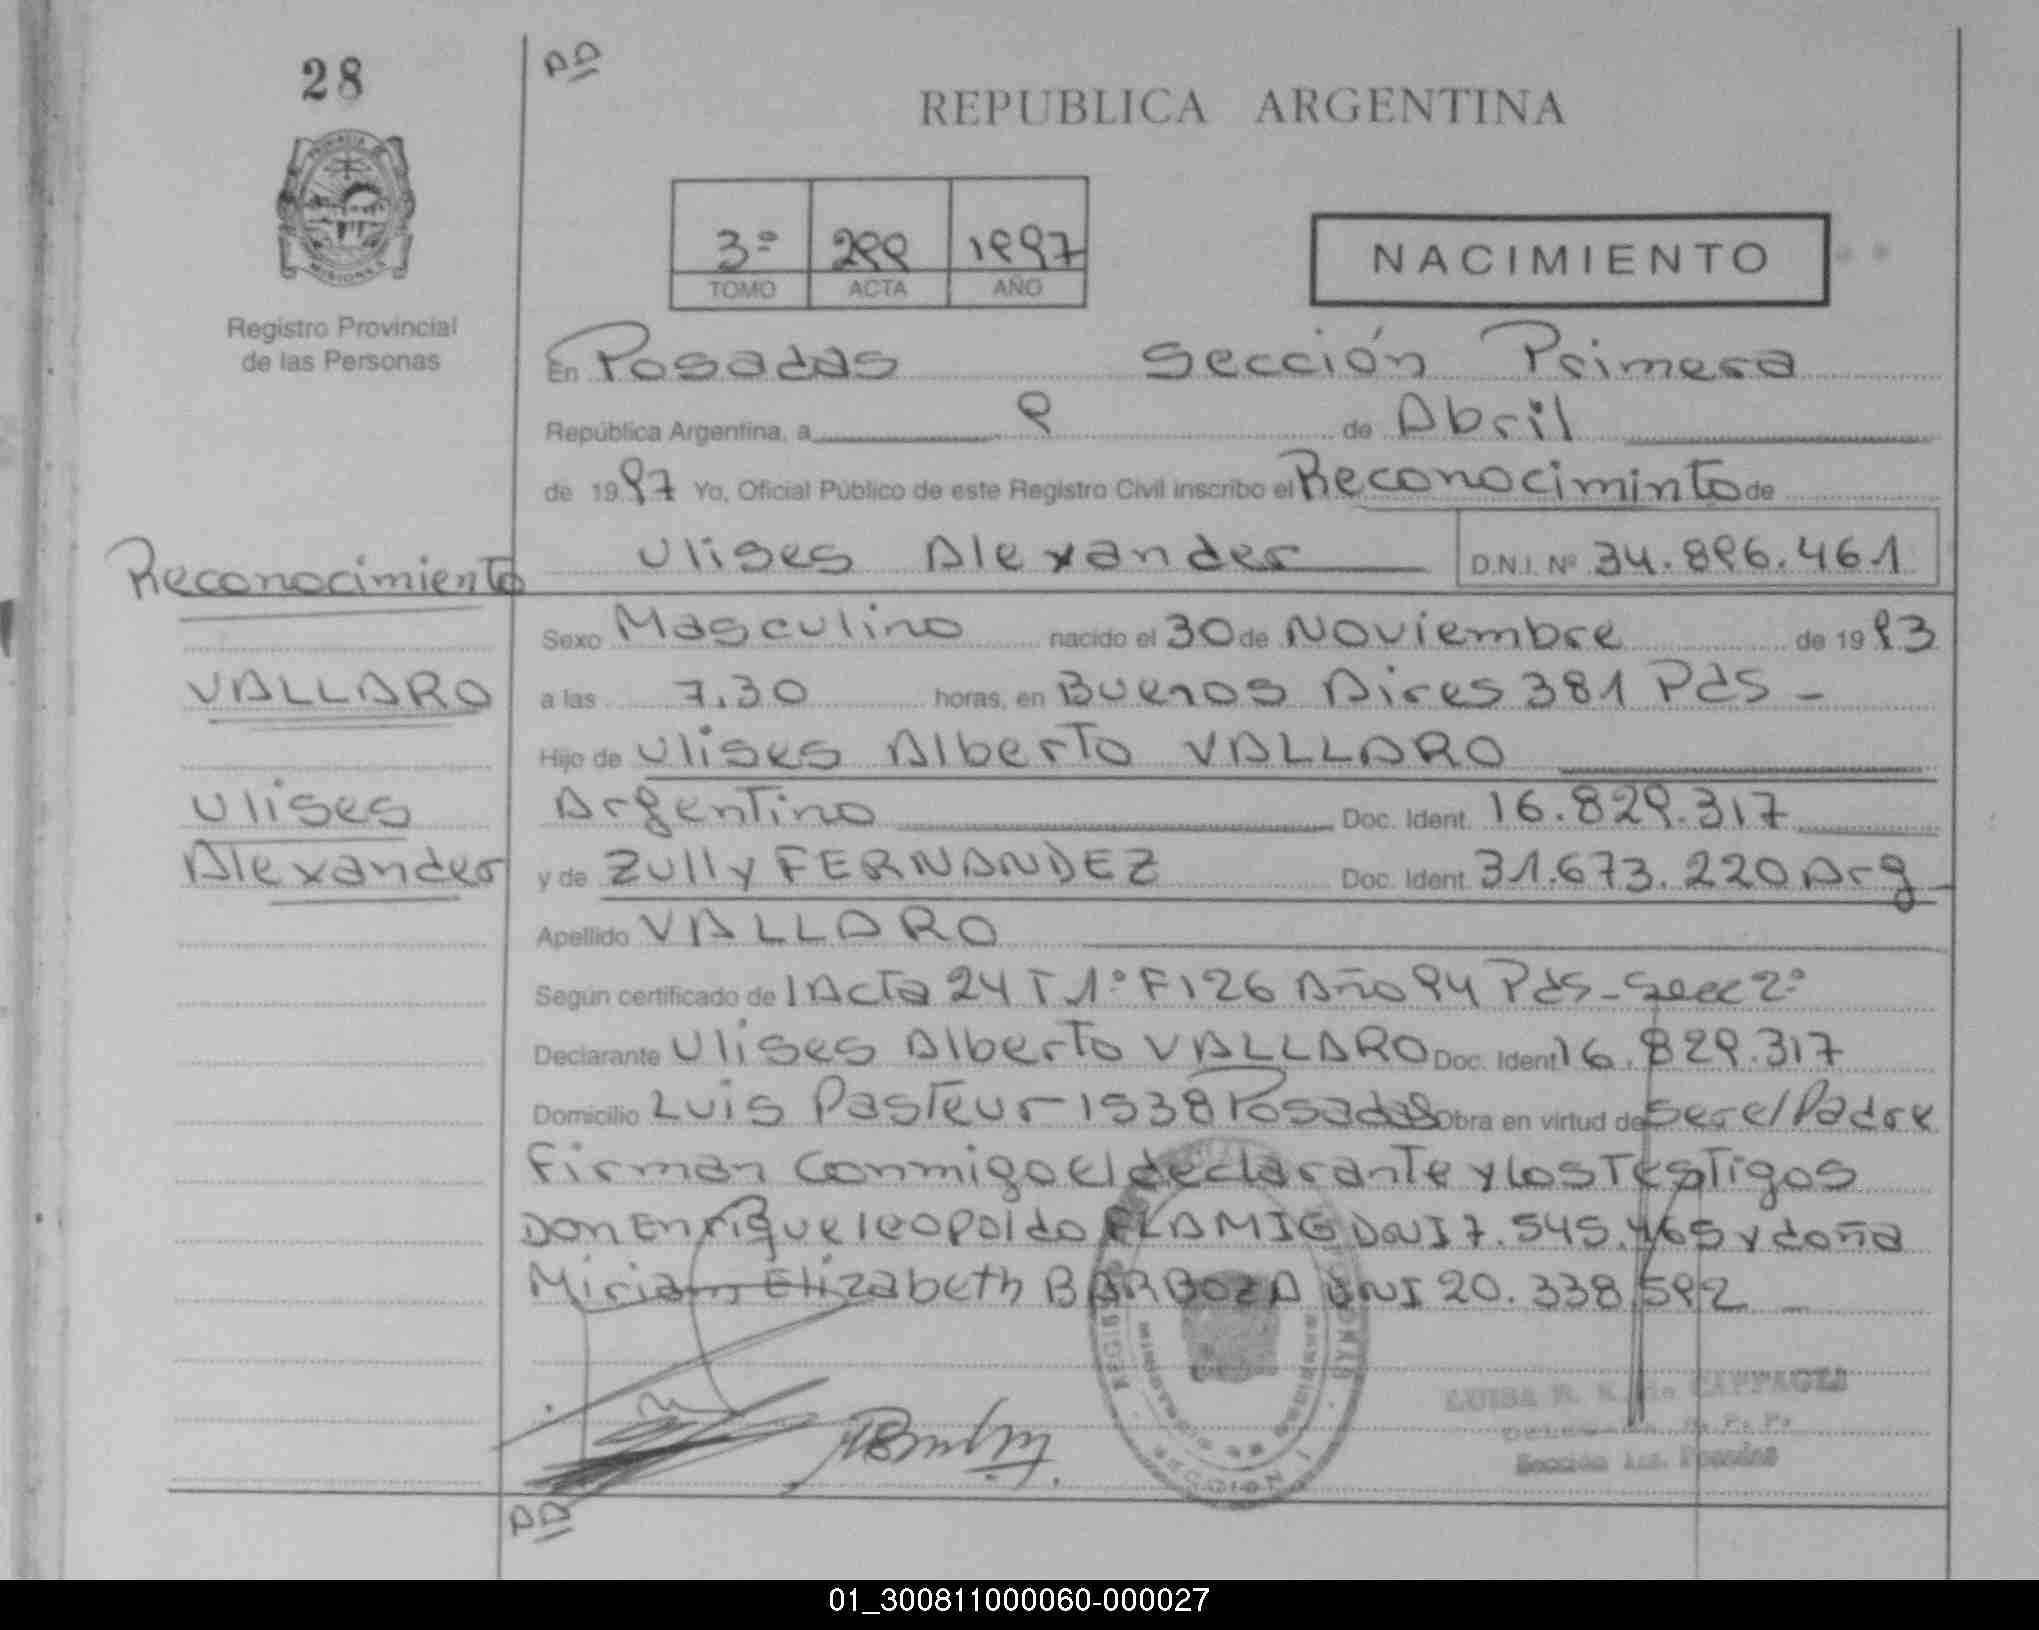 28
REPUBLICA ARGENTINA
3º 299 1997
TOMO ACTA AÑO
NACIMIENTO
Registro Provincial
de las Personas
En Posadas Sección Primera
República Argentina, a 9 de Abril
de 1997 Yo, Oficial Público de este Registro Civil inscribo el Reconociminto de
Ulises Alexander D.N.I. Nº 34.896.461
Reconocimiento
Sexo Masculino nacido el 30 de Noviembre de 1993
VALLARO
a las 7.30 horas, en Buenos Aires 381 Pds -
Hijo de Ulises Alberto VALLARO
Ulises
Argentino Doc. Ident. 16.829.317
Alexander
y de Zully FERNANDEZ Doc. Ident. 31.673.220 Arg
Apellido VALLARO
Según certificado de 1 Acta 24 T 1º F 126 Año 94 Pds - Secc 2º
Declarante Ulises Alberto VALLARO Doc. Ident 16.829.317
Domicilio Luis Pasteur 1538 Posadas Obra en virtud de Ser el Padre
Firman Conmigo el declarante y los Testigos
Don Enrique leopoldo FLAMIG DNI 7.545.465 y doña
Miriam Elizabeth BARBOZA DNI 20.338.592
LUISA R. K. de CAPPAGLI
DELEGADA R. P. P.
Sección 1ra. Posadas
SECCION 1
01_300811000060-000027